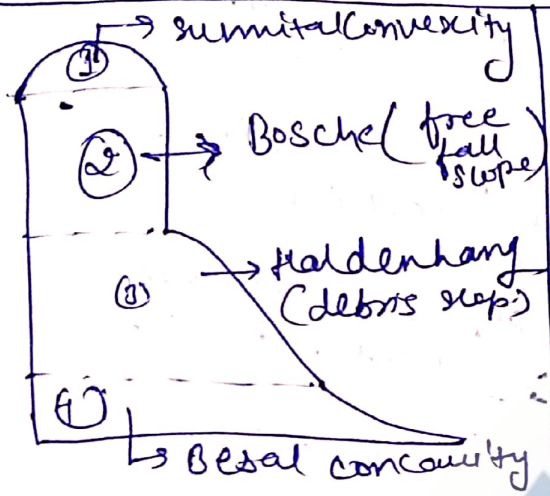 ① → summital convexity
② → Bosche (free
fall
slope)
③ → Haldenhang
(debris slop:)
④
↳ Besal concavity